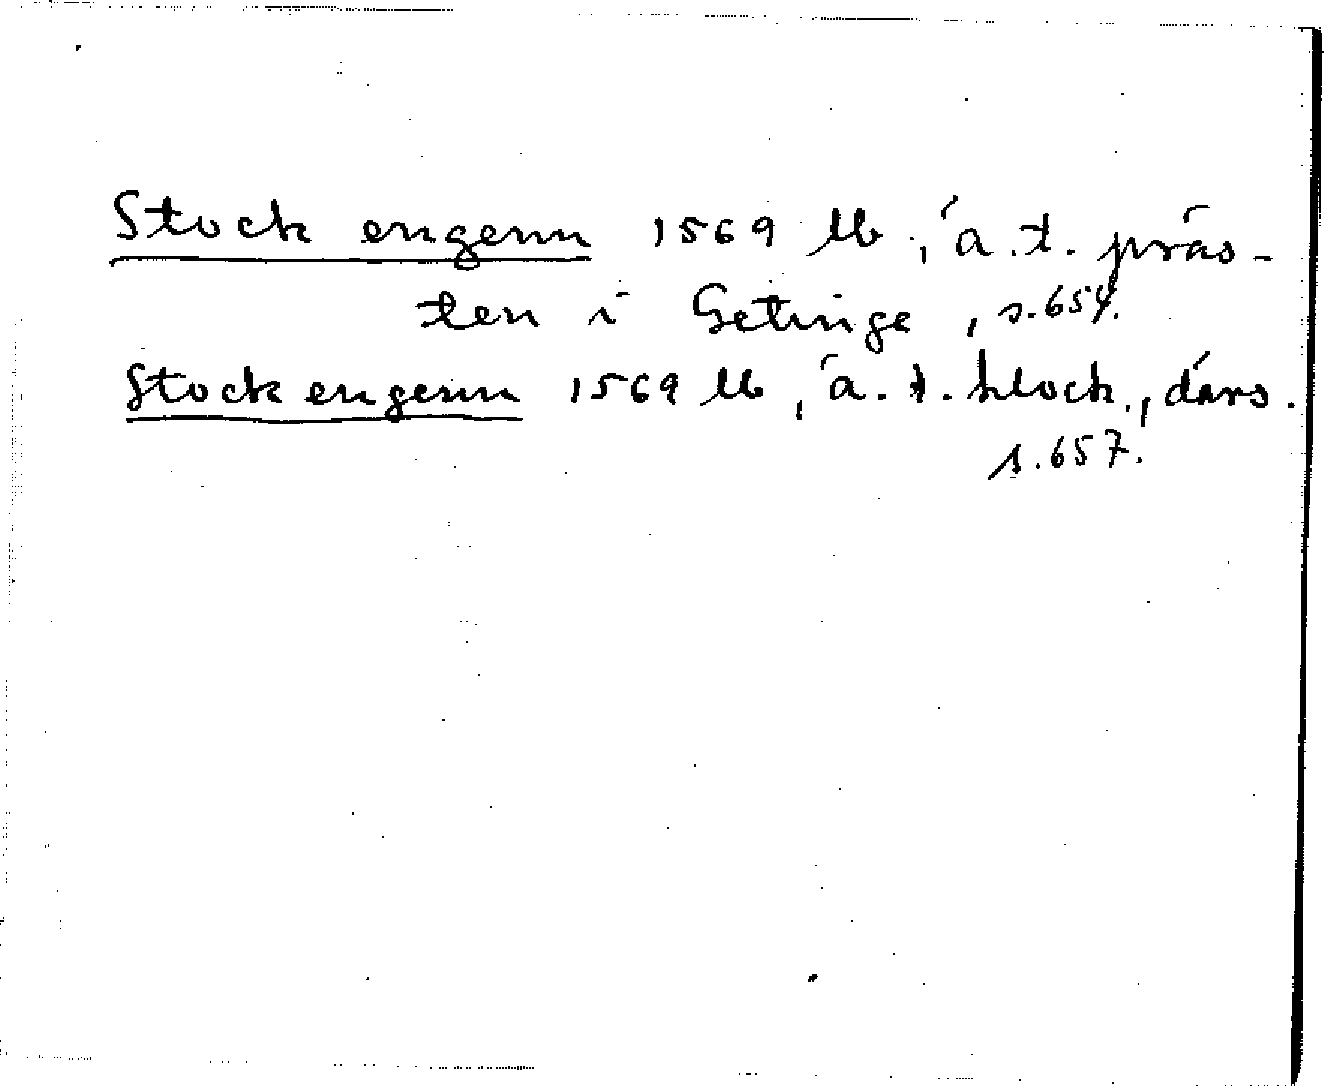 Stock engenn 1569 lb., ä.t. präs-
ten i Getinge, s.654.
Stock engenn 1569 lb, ä.t. klock., därs.
s.657.